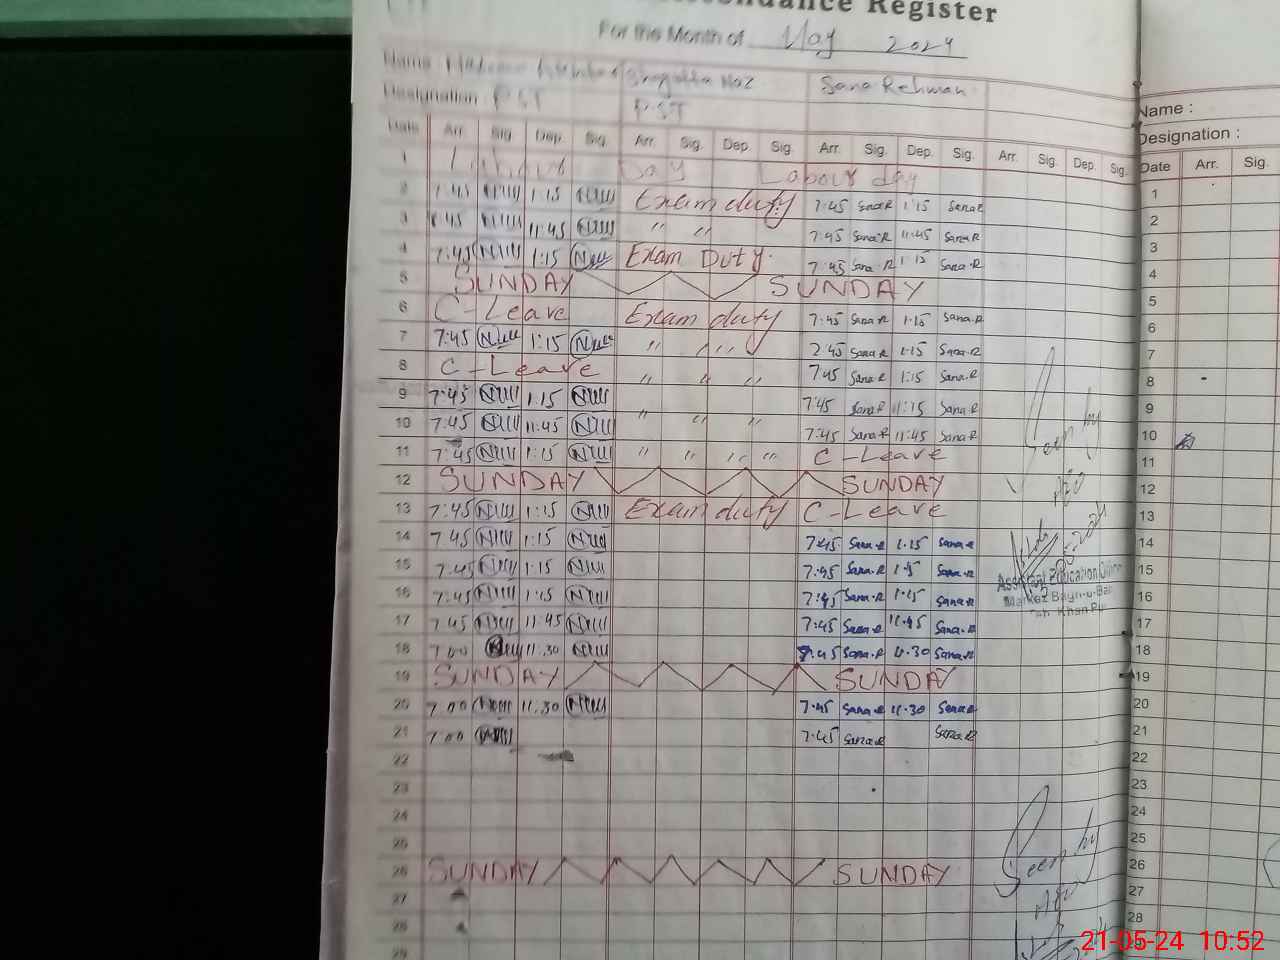 Attendance Register
For the Month of May 2024
Name : Shagufta Naz Sana Rehman Name :
Designation : PST PST Designation :
Date Arr. Sig. Dep. Sig. Arr. Sig. Dep. Sig. Arr. Sig. Dep. Sig. Arr. Sig. Dep. Sig. Date Arr. Sig.
1 Labour Day Labour day 1
2 7:45 1:15 Exam duty 7:45 Sana R 1:15 Sana R 2
3 7:45 11:45 " " 7:45 Sana R 11:45 Sana R 3
4 7:45 1:15 Exam Duty. 7:45 Sana R 1:15 Sana R 4
5 SUNDAY SUNDAY 5
6 C-Leave Exam duty 7:45 Sana R 1:15 Sana R 6
7 7:45 1:15 " " " 2:45 Sana R 1:15 Sana R 7
8 C-Leave " " " 7:45 Sana R 1:15 Sana R 8
9 7:45 1:15 7:45 Sana R 11:15 Sana R 9
10 7:45 11:45 " " " 7:45 Sana R 11:45 Sana R 10
11 7:45 1:15 " " " " C-Leave 11
12 SUNDAY SUNDAY 12
13 7:45 1:15 Exam duty C-Leave 13
14 7:45 1:15 7:45 Sana R 1:15 Sana R 14
15 7:45 1:15 7:45 Sana R Sana R 15
16 7:45 1:15 7:45 Sana R 1:15 Sana R 16
17 7:45 11:45 7:45 Sana R 11:45 Sana R 17
18 7:00 11:30 7:45 Sana R 11:30 Sana R 18
19 SUNDAY SUNDAY 19
20 7:00 11:30 7:45 Sana R 11:30 Sana R 20
21 7:00 7:45 Sana R Sana R 21
22 22
23 23
24 24
25 25
26 SUNDAY SUNDAY 26
27 27
28 28
29
Seen by
AEO
Assistant Education Officer
Markaz
Khan Pur
Seen by
AEO
21-05-24 10:52